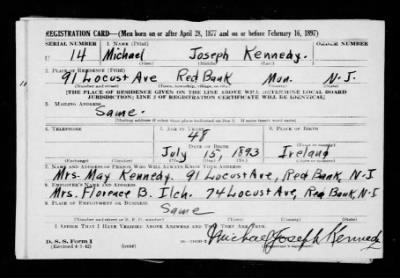 REGISTRATION CARD—(Men born on or after April 28, 1877 and on or before February 16, 1897)
SERIAL NUMBER 1. NAME (Print) ORDER NUMBER
14 Michael Joseph Kennedy.
(First) (Middle) (Last)
2. PLACE OF RESIDENCE (Print)
91 Locust Ave Red Bank Mon. N.J.
(Number and street) (Town, township, village, or city) (County) (State)
[THE PLACE OF RESIDENCE GIVEN ON THE LINE ABOVE WILL DETERMINE LOCAL BOARD
JURISDICTION; LINE 2 OF REGISTRATION CERTIFICATE WILL BE IDENTICAL]
3. MAILING ADDRESS
Same.
[Mailing address if other than place indicated on line 2. If same insert word same]
4. TELEPHONE 5. AGE IN YEARS 6. PLACE OF BIRTH
48
DATE OF BIRTH
July 15, 1893 Ireland
(Exchange) (Number) (Mo.) (Day) (Yr.) (State or country)
7. NAME AND ADDRESS OF PERSON WHO WILL ALWAYS KNOW YOUR ADDRESS
Mrs. May Kennedy. 91 Locust Ave, Red Bank, N.J
8. EMPLOYER'S NAME AND ADDRESS
Mrs. Florence B. Ilch. 74 Locust Ave, Red Bank, N.J
9. PLACE OF EMPLOYMENT OR BUSINESS
Same
(Number and street or R. F. D. number) (Town) (County) (State)
I AFFIRM THAT I HAVE VERIFIED ABOVE ANSWERS AND THAT THEY ARE TRUE.
D. S. S. Form 1
(Revised 4-1-42) (over)
Michael Joseph Kennedy